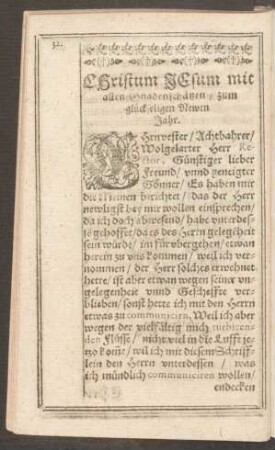 32.
CHristum JEsum mit
allen Gnadenschätzen / zum
glückseligen Newen
Jahr.
EHrnvester / Achtbahrer /
Wolgelarter Herr Re-
ctor, Günstiger lieber
Freund / vnnd geneigter
Gönner / Es haben mir
die Meinen berichtet / das der Herr
newligst bey mir wollen einsprechen /
da ich doch abwesend / habe vnterdes-
se gehoffet / da es des Herꝛn gelegēheit
sein würde / im fürübergehen / etwan
herein zu vns kommen / weil ich ver-
nommen / der Herr solches erwehnet
hette / ist aber etwan wegen seiner vn-
gelegenheit vnnd Gescheffte ver-
blieben / sonst hette ich mit den Herrn
etwas zu communicirn. Weil ich aber
wegen der vielfältig mich
den Flüsse / nicht viel in die Lufft je-
tzo kom̃e / wil ich mit diesem Schrifft-
lein den Herrn vnterdessen / was
ich mündlich communiciren wollen /
endecken